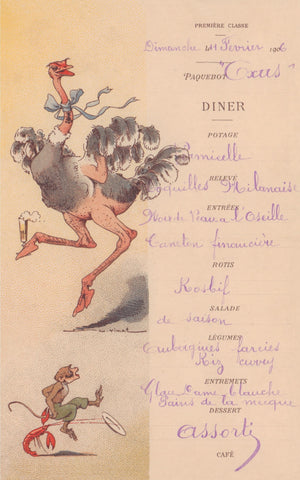 PREMIÈRE CLASSE
Dimanche Février 1906
PAQUEBOT
DINER
POTAGE
Vermicelle
RELEVÉ
Coquilles Milanaise
ENTRÉES
Noix de Veau à l'Oseille
Caneton financière
ROTIS
Rosbif
SALADE
de saison
LÉGUMES
Aubergines farcies
Riz
ENTREMETS
Dame blanche
Pains de la mecque
DESSERT
Assorti
CAFÉ